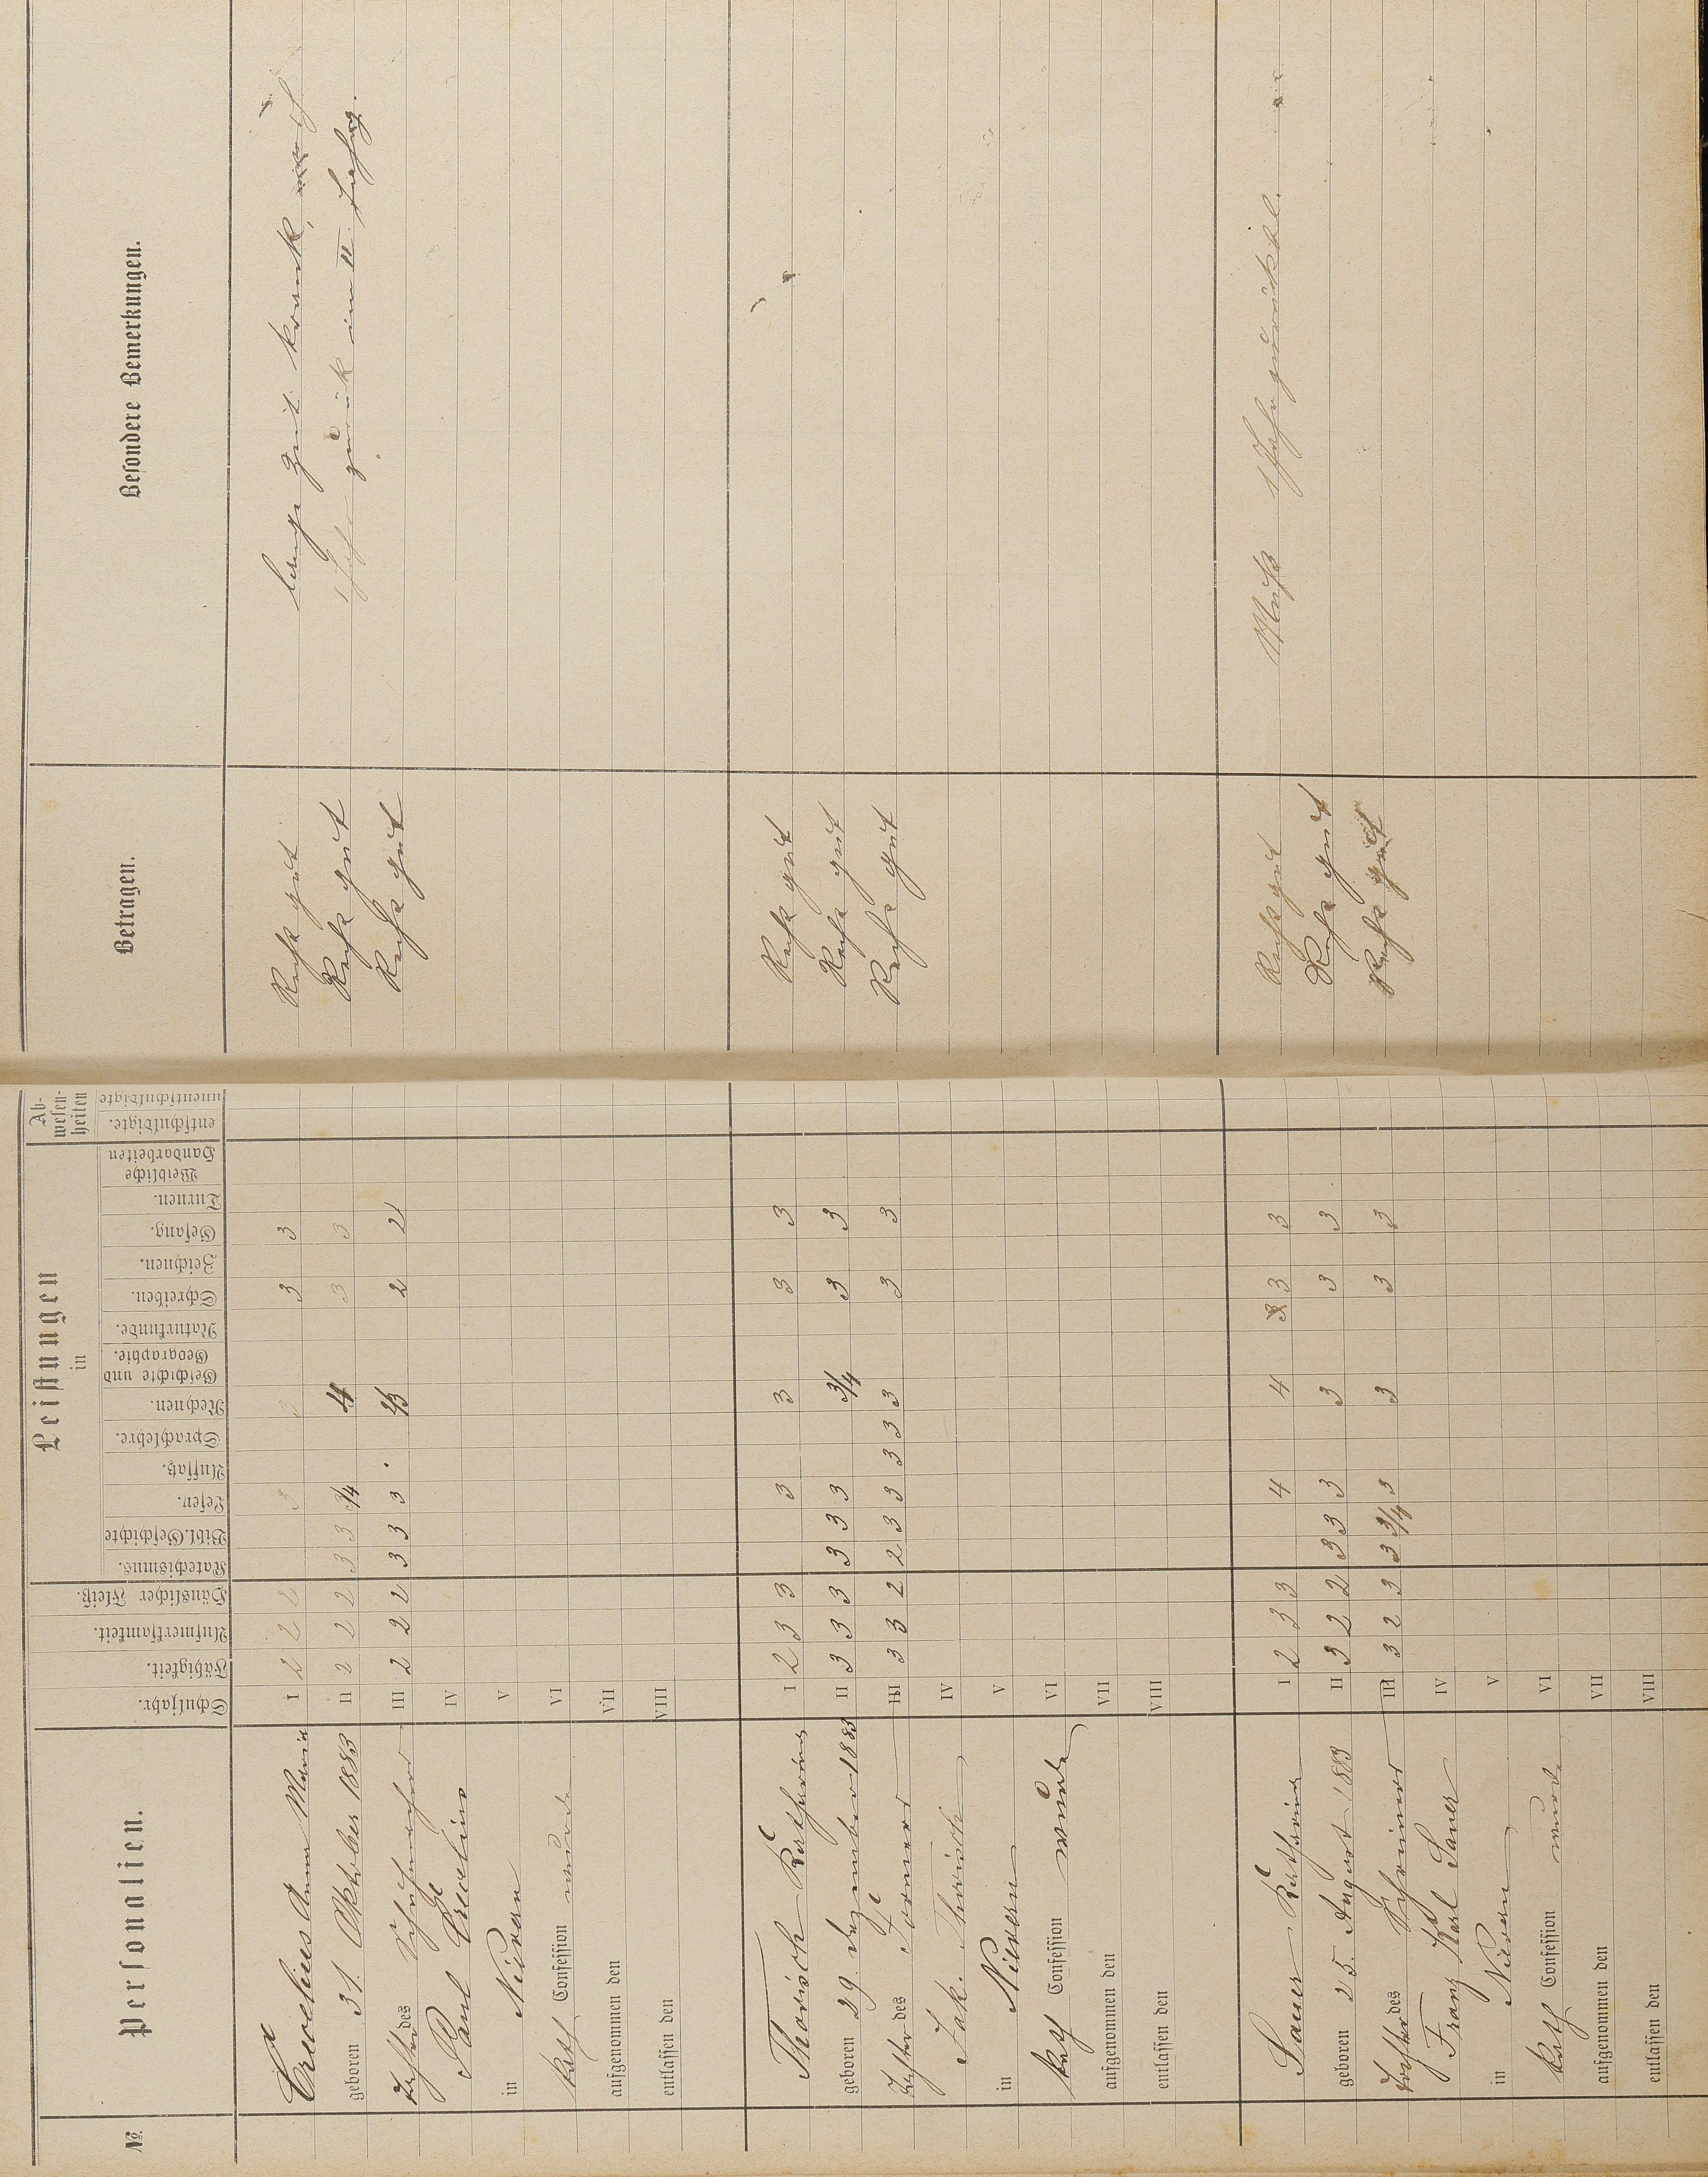 №.
Personalien.
Schuljahr.
Fähigkeit.
Aufmerksamkeit.
Häuslicher Fleiß.
Leistungen
in
Katechismus.
Bibl. Geschichte
Lesen.
Aufsatz.
Sprachlehre.
Rechnen.
Geschichte und
Geographie.
Naturkunde.
Schreiben.
Zeichnen.
Gesang.
Turnen.
Weibliche
Handarbeiten
Ab-
wesen-
heiten
entschuldigte.
unentschuldigte
Betragen.
Besondere Bemerkungen.
Crecelius Anna Maria I 2 2 2 3 3 3 3 Recht gut lange Zeit krank,
geboren 31. Oktober 1883 II 2 2 2 3 3 3/4 4 3 3 Recht gut zurück im II.
Tochter des Schuhmacher III 2 2 2 3 3 3 2/3 2 2 Recht gut
Paul Crecelius IV
in Nievern V
kath Confession wurde VI
aufgenommen den VII
entlassen den VIII
Thorisch Katharina I 2 3 3 3 3 3 3 Recht gut
geboren 29. Dezember 1883 II 3 3 3 3 3 3 3/4 3 3 Recht gut
Tochter des Former III 3 3 2 2 3 3 3 3 3 3 3 Recht gut
Jak. Thorisch IV
in Nievern V
kath Confession wurde VI
aufgenommen den VII
entlassen den VIII
Sauer Katharina I 2 3 3 4 4 3 3 Recht gut Muß 1 Jahr zurückbl.
geboren 25. August 1883 II 3 2 2 3 3 3 3 3 3 Recht gut
Tochter des Schreiner III 3 2 3 3 3/4 3 3 3 3 Recht gut
Franz Karl Sauer IV
in Nievern V
kath Confession wurde VI
aufgenommen den VII
entlassen den VIII